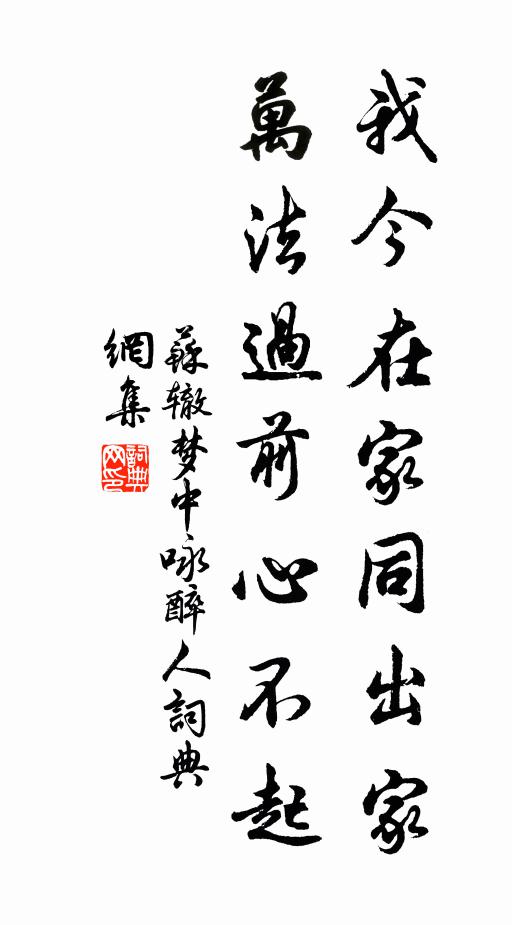 我今在家同出家
萬法過前心不起
蘇辙梦中咏醉人詞典
網集
詞典
网印